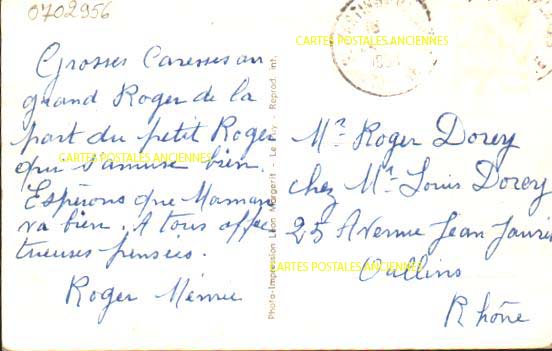 0702956
CARTES POSTALES ANCIENNES
Grosses Caresses au
grand Roger de la
part du petit Roger
qui s'amuse bien.
CARTES POSTALES ANCIENNES
Espérons que Maman
va bien. A tous affec
tueuses pensées.
Roger Mémée
Photo-Impression Léon Margerit - Le Puy - Reprod. int.
Mr Roger Dorey
chez Mr Louis Dorey
25 Avenue Jean Jaurès
CARTES POSTALES ANCIENNES
Oullins
Rhône